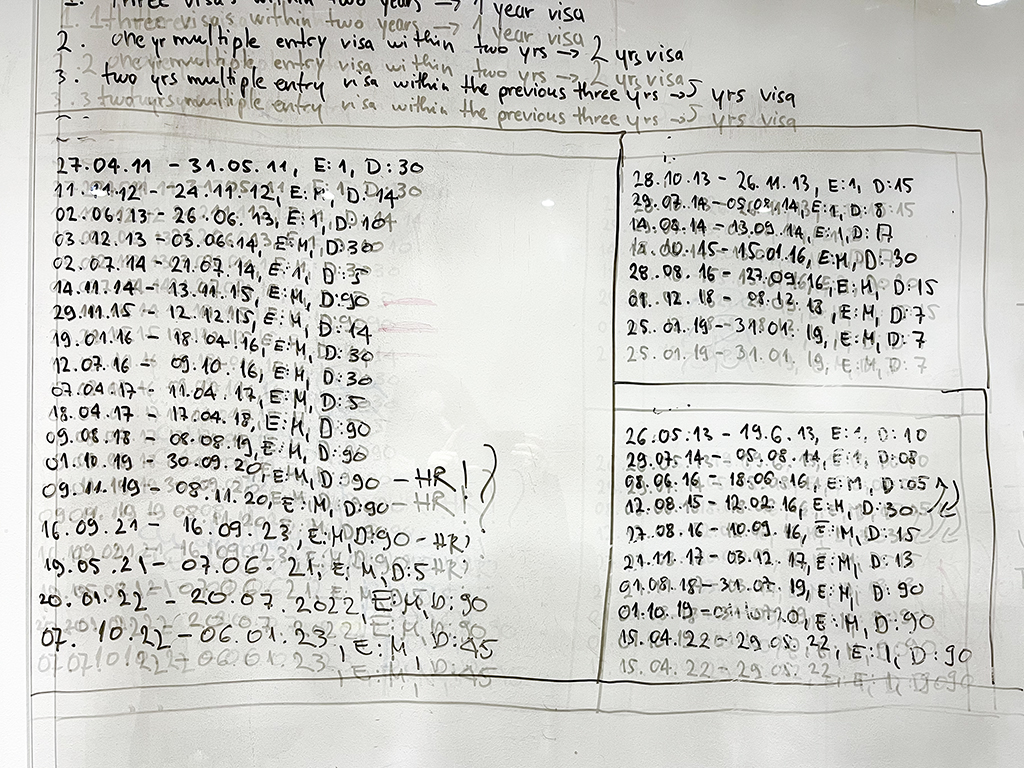 1. Three visas within two years → 1 year visa
2. one yr multiple entry visa within two yrs → 2 yrs visa
3. two yrs multiple entry visa within the previous three yrs → 5 yrs visa
27.04.11 - 31.05.11, E:1, D:30
24.11.12, E:M, D:14
02.06.13 - 26.06.13, E:1, D:10
03.12.13 - 03.06.14, E:M, D:30
02.07.14 - 21.07.14, E:1, D:5
14.11.14 - 13.11.15, E:M, D:90
29.11.15 - 12.12.15, E:M, D:14
19.01.16 - 18.04.16, E:M, D:30
12.07.16 - 09.10.16, E:M, D:30
07.04.17 - 11.04.17, E:M, D:5
18.04.17 - 17.04.18, E:M, D:90
09.08.18 - 08.08.19, E:M, D:90
01.10.19 - 30.09.20, E:M, D:90 - HR!
09.11.19 - 08.11.20, E:M, D:90
16.09.21 - 16.09.23, E:M, D:90 - HR!
19.05.21 - 07.06.21, E:M, D:5
20.01.22 - 20.07.2022, E:M, D:90
07.10.22 - 06.01.23, E:M, D:45
28.10.13 - 26.11.13, E:1, D:15
29.07.14 - 05.08.14, E:1, D:8
14.08.14 - 13.09.14, E:1, D:17
15.01.16, E:M, D:30
28.08.16 - 27.09.16, E:M, D:15
01.12.18 - 08.12.18, E:M, D:7
25.01.19 - 31.01.19, E:M, D:7
26.05.13 - 19.6.13, E:1, D:10
29.07.14 - 05.08.14, E:1, D:08
08.06.16 - 18.06.16, E:M, D:05
12.08.15 - 12.02.16, E:M, D:30
27.08.16 - 10.09.16, E:M, D:15
21.11.17 - 03.12.17, E:M, D:13
01.08.18 - 31.07.19, E:M, D:90
01.10.19 - E:M, D:90
15.04.22 - 29.05.22, E:1, D:90